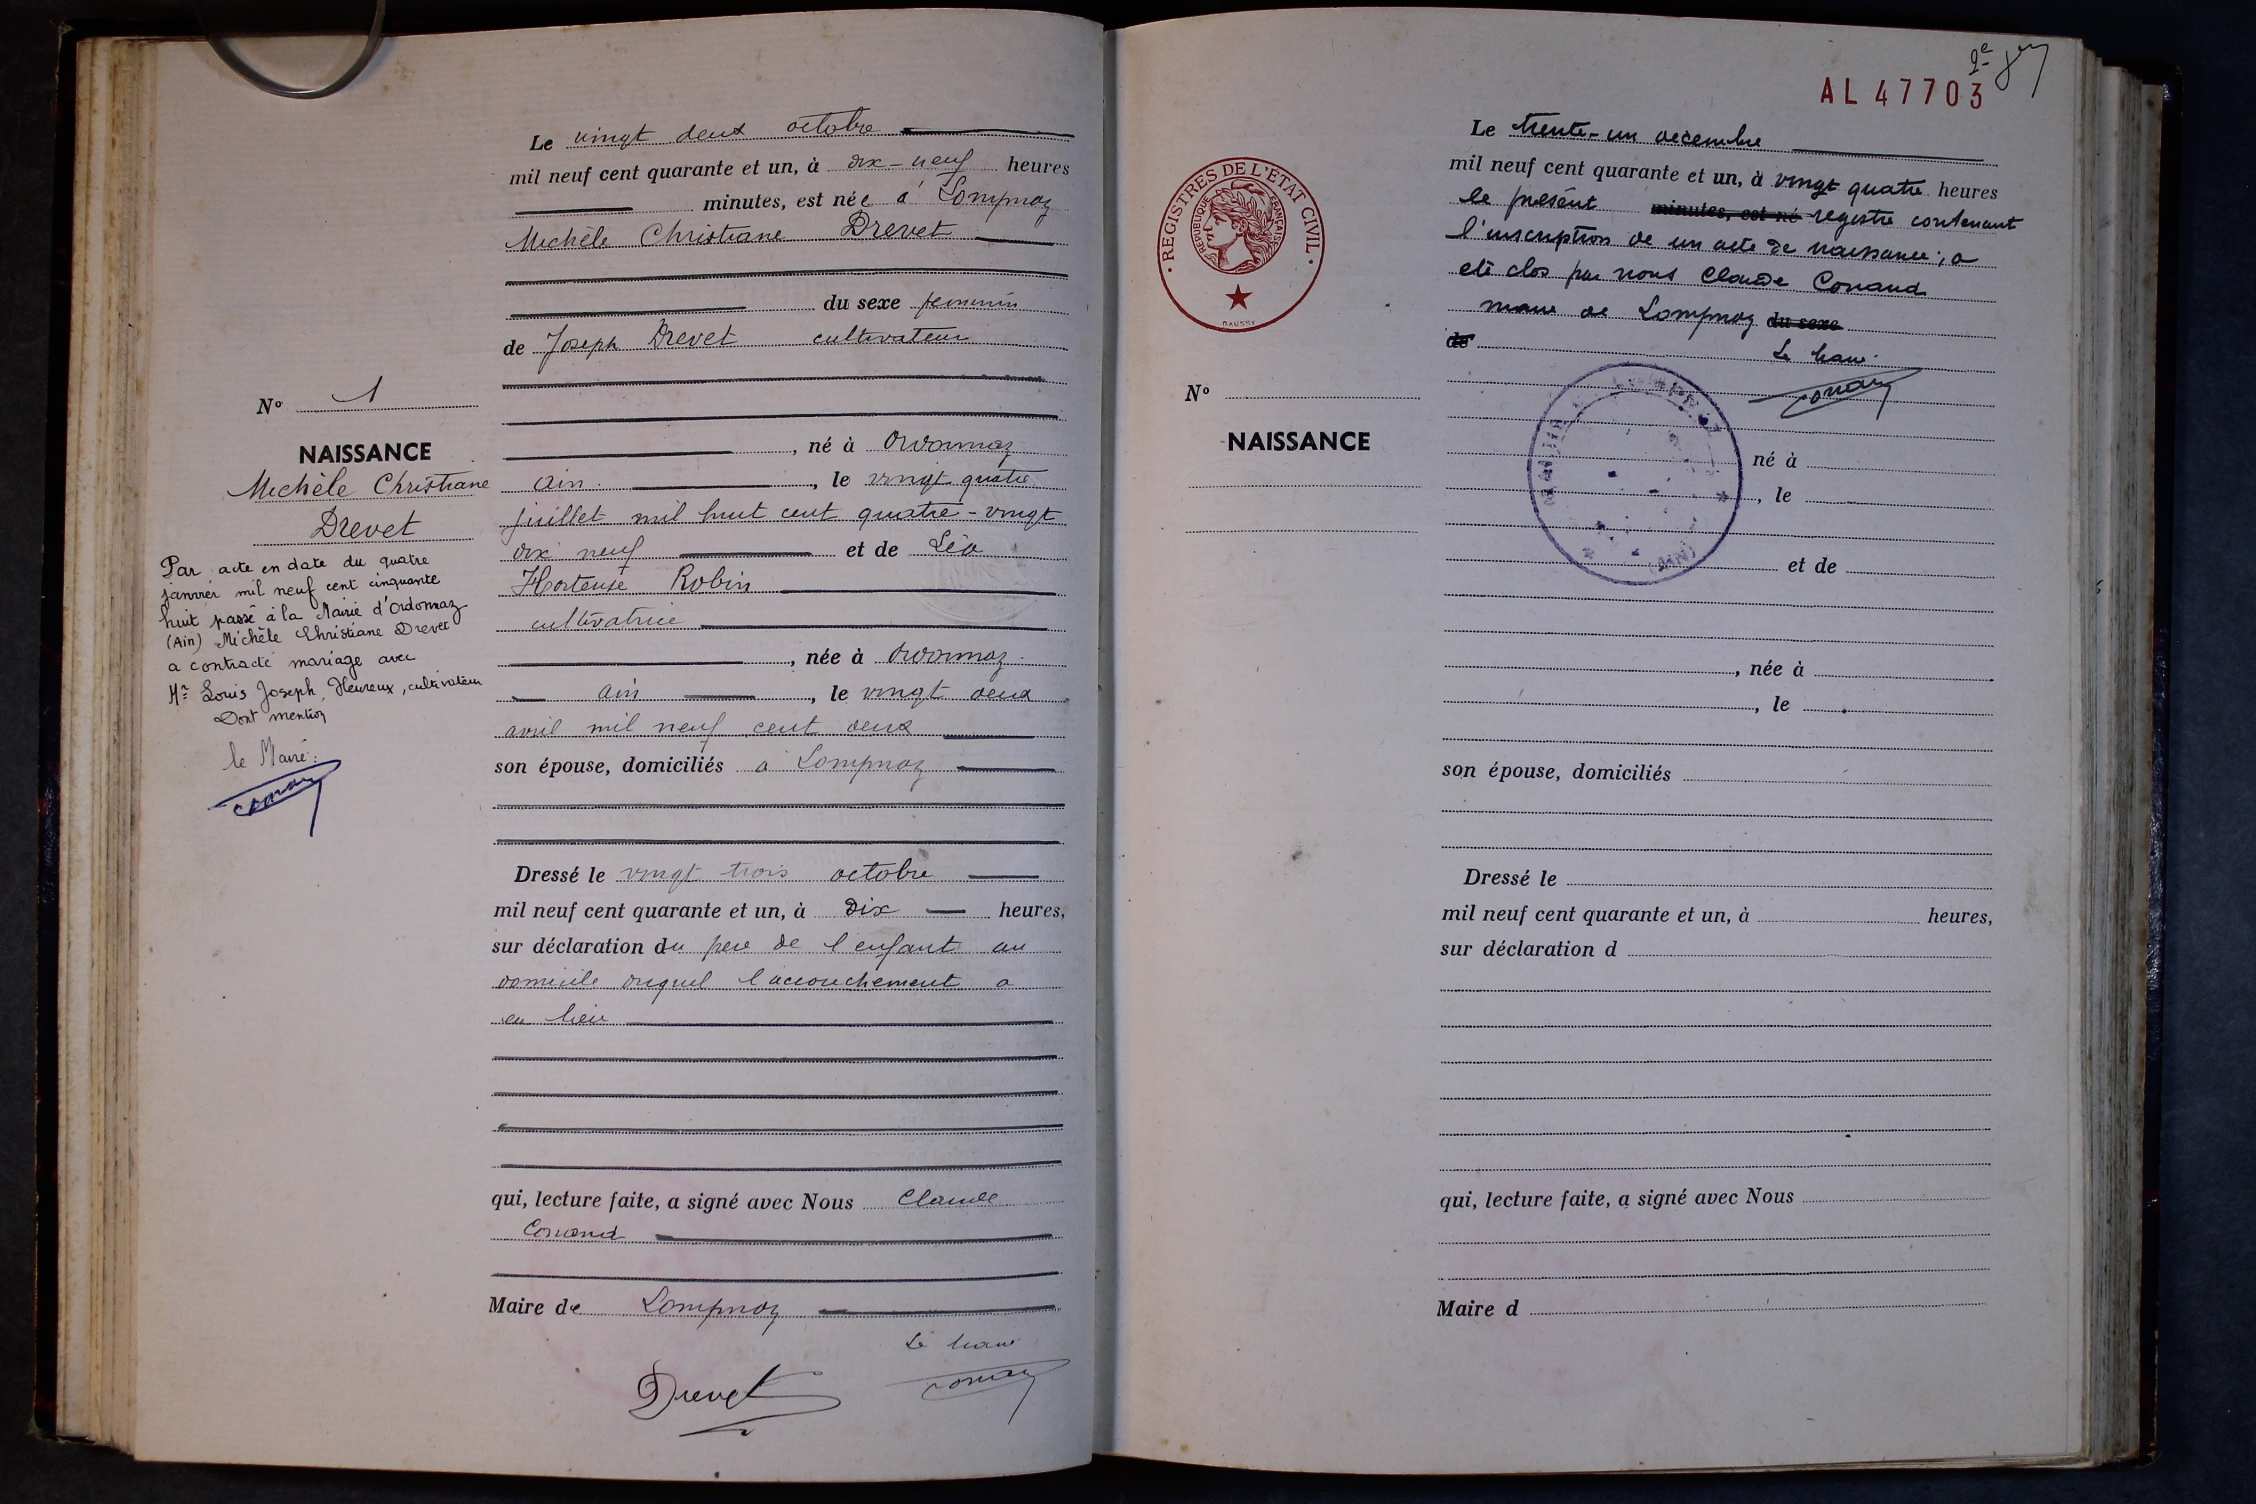 Le vingt deux octobre
mil neuf cent quarante et un, à dix-neuf heures
minutes, est née à Lompnaz
Michèle Christiane Drevet
du sexe feminin
de Joseph Drevet cultivateur
, né à Ordonnaz
Ain , le vingt quatre
juillet mil huit cent quatre-vingt
dix neuf et de Léa
Hortense Robin
cultivatrice
, née à Ordonnaz
ain , le vingt deux
avril mil neuf cent deux
son épouse, domiciliés à Lompnaz
Dressé le vingt trois octobre
mil neuf cent quarante et un, à dix heures,
sur déclaration du père de l'enfant au
domicile duquel l'accouchement a
eu lieu
qui, lecture faite, a signé avec Nous Claude
Conand
Maire de Lompnaz
Le maire
Drevet
Conand
N° 1
NAISSANCE
Michèle Christiane
Drevet
Par acte en date du quatre
janvier mil neuf cent cinquante
huit passé à la Mairie d'Ordonnaz
(Ain) Michèle Christiane Drevet
a contracté mariage avec
Mr Louis Joseph Heureux, cultivateur
Dont mention
le Maire:
Conand
2e
AL 47703
REGISTRES DE L'ETAT CIVIL
REPUBLIQUE FRANÇAISE
DAUSSY
Le trente-un decembre
mil neuf cent quarante et un, à vingt quatre heures
le présent minutes, est né registre contenant
l'inscription de un acte de naissance, a
eté clos par nous Claude Conand
maire de Lompnaz du sexe
de
Le maire
Conand
N°
NAISSANCE
né à
, le
(AIN)
et de
, née à
, le
son épouse, domiciliés
Dressé le
mil neuf cent quarante et un, à heures,
sur déclaration d
qui, lecture faite, a signé avec Nous
Maire d